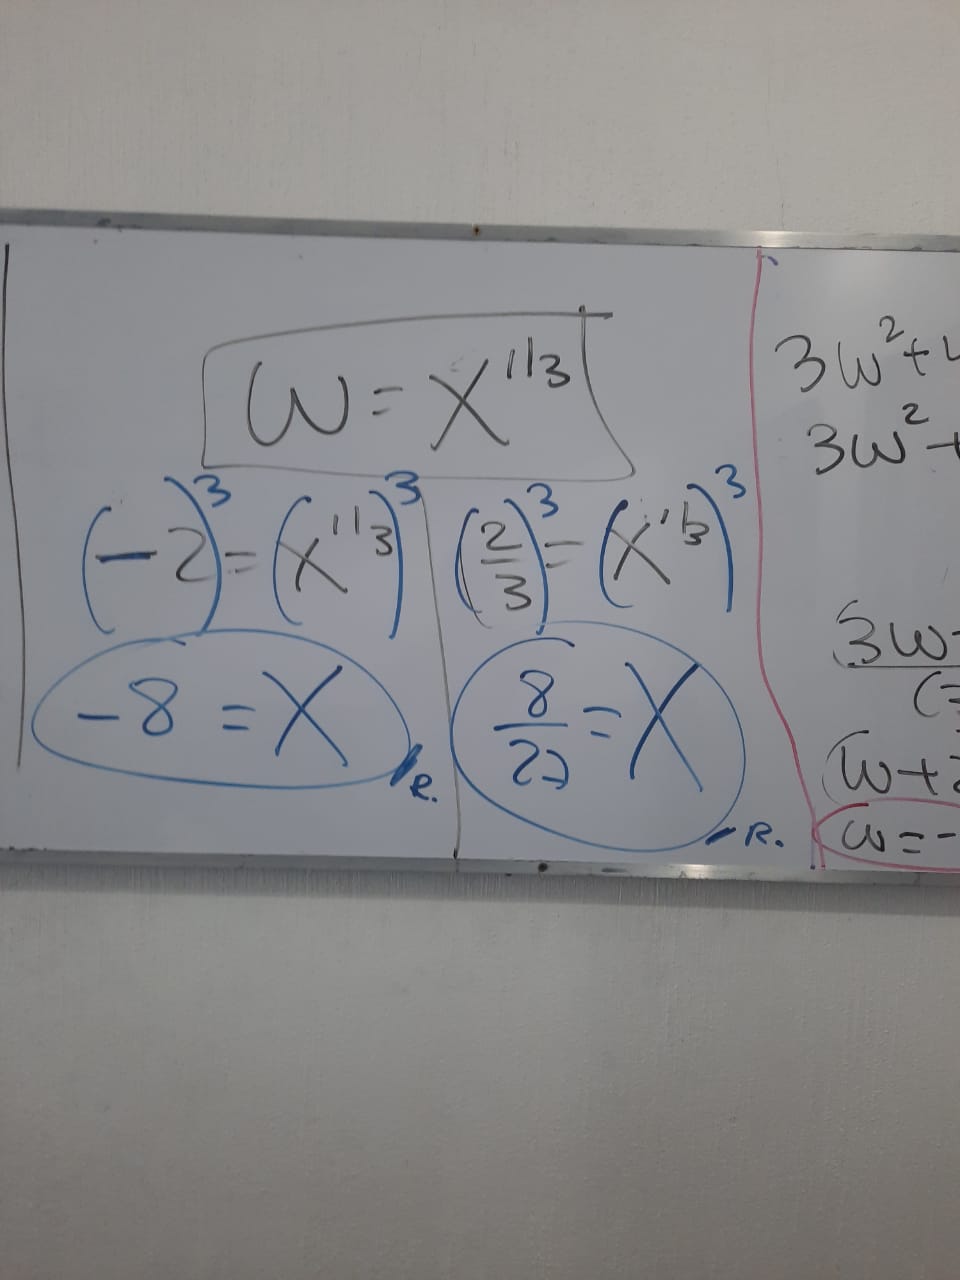 W = X^1/3
(-2)^3 = (x^1/3)^3
-8 = X
R.
(2/3)^3 = (x^1/3)^3
8/27 = X
R.
3w^2+
3w^2
3w
(w+2
w=-